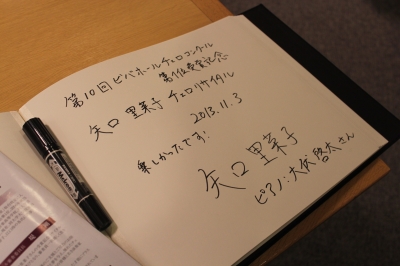 第10回 ビバホールチェロコンクール
第1位受賞記念
矢口 里菜子 チェロリサイタル
2013.11.3
楽しかったです!
矢口里菜子
ピアノ:大伏啓太さん